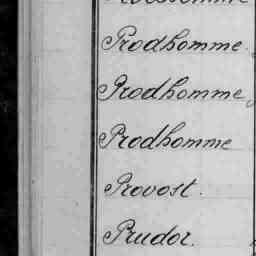 Prodhomme
Prodhomme
Prodhomme
Provost.
Prudor.